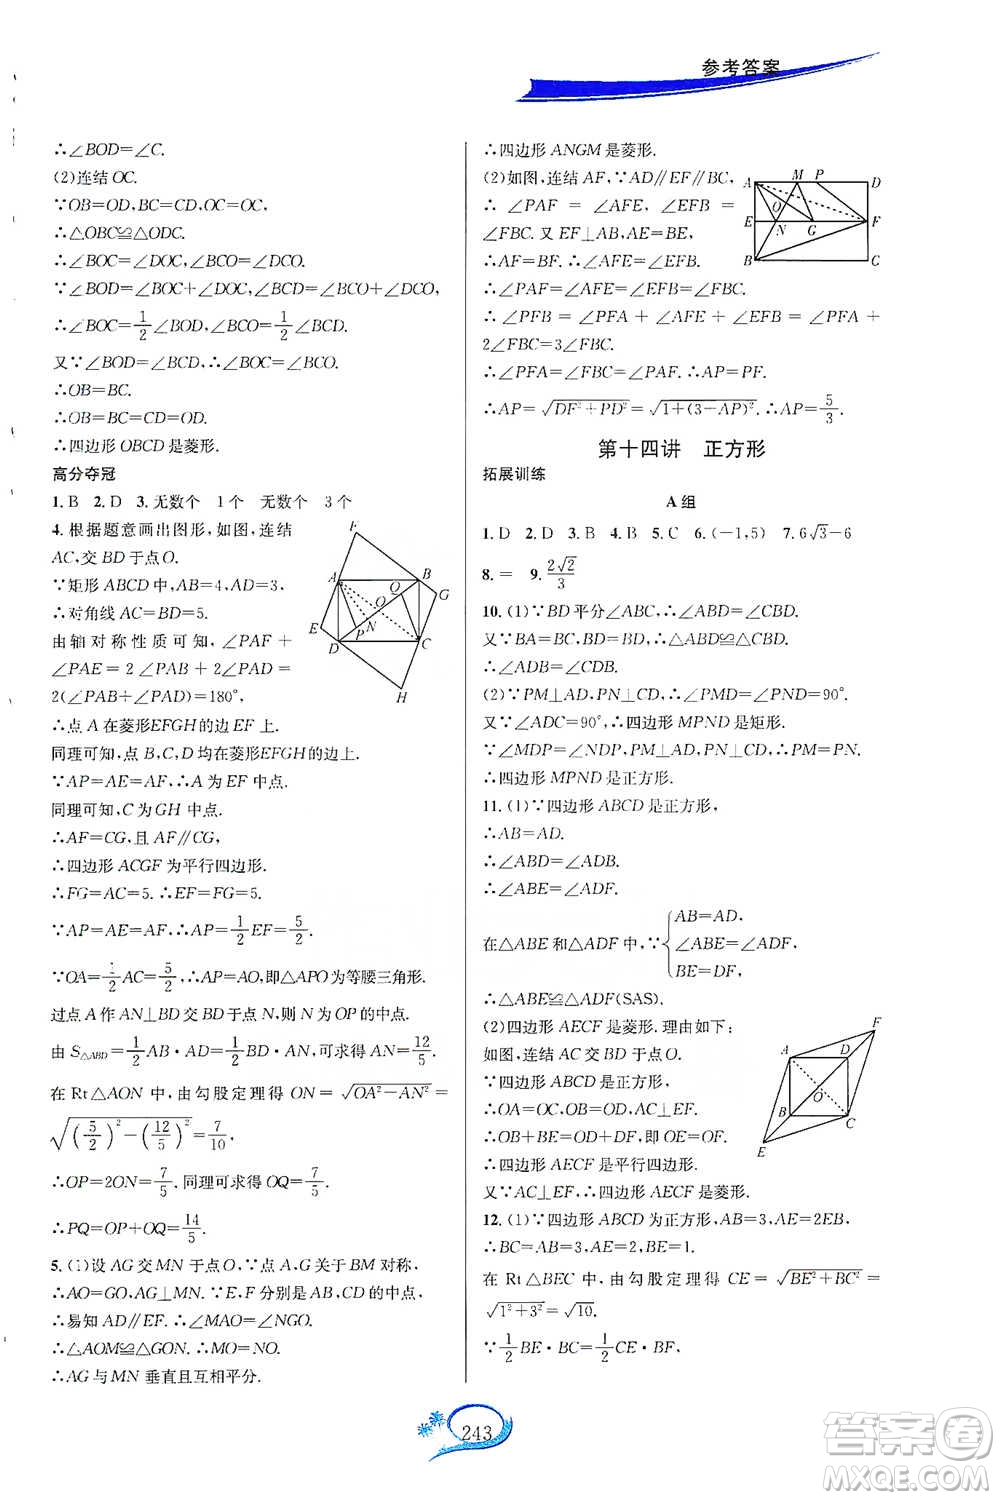 参考答案
∴∠BOD=∠C.
(2)连结OC.
∵OB=OD,BC=CD,OC=OC,
∴△OBC≌△ODC.
∴∠BOC=∠DOC,∠BCO=∠DCO.
∵∠BOD=∠BOC+∠DOC,∠BCD=∠BCO+∠DCO,
∴∠BOC=1/2∠BOD,∠BCO=1/2∠BCD.
又∵∠BOD=∠BCD,∴∠BOC=∠BCO.
∴OB=BC.
∴OB=BC=CD=OD.
∴四边形OBCD是菱形.
高分夺冠
1. B 2. D 3. 无数个 1个 无数个 3个
4. 根据题意画出图形,如图,连结
AC,交BD于点O.
∵矩形ABCD中,AB=4,AD=3,
∴对角线AC=BD=5.
由轴对称性质可知,∠PAF+
∠PAE=2∠PAB+2∠PAD=
2(∠PAB+∠PAD)=180°,
∴点A在菱形EFGH的边EF上.
同理可知,点B,C,D均在菱形EFGH的边上.
∵AP=AE=AF,∴A为EF中点.
同理可知,C为GH中点.
∴AF=CG,且AF∥CG.
∴四边形ACGF为平行四边形.
∴FG=AC=5.∴EF=FG=5.
∵AP=AE=AF,∴AP=1/2EF=5/2.
∵OA=1/2AC=5/2,∴AP=AO,即△APO为等腰三角形.
过点A作AN⊥BD交BD于点N,则N为OP的中点.
由S△ABD=1/2AB·AD=1/2BD·AN,可求得AN=12/5.
在Rt△AON中,由勾股定理得ON=√(OA²-AN²)=
√((5/2)²-(12/5)²)=7/10,
∴OP=2ON=7/5.同理可求得OQ=7/5.
∴PQ=OP+OQ=14/5.
5. (1)设AG交MN于点O,∵点A,G关于BM对称,
∴AO=GO,AG⊥MN.∵E,F分别是AB,CD的中点,
∴易知AD∥EF.∴∠MAO=∠NGO.
∴△AOM≌△GON.∴MO=NO.
∴AG与MN垂直且互相平分.
∴四边形ANGM是菱形.
(2)如图,连结AF,∵AD∥EF∥BC,
∴∠PAF=∠AFE,∠EFB=
∠FBC.又EF⊥AB,AE=BE,
∴AF=BF.∴∠AFE=∠EFB.
∴∠PAF=∠AFE=∠EFB=∠FBC.
∴∠PFB=∠PFA+∠AFE+∠EFB=∠PFA+
2∠FBC=3∠FBC.
∴∠PFA=∠FBC=∠PAF.∴AP=PF.
∴AP=√(DF²+PD²)=√(1+(3-AP)²).∴AP=5/3.
第十四讲 正方形
拓展训练
A组
1. D 2. D 3. B 4. B 5. C 6. (-1,5) 7. 6√3-6
8. = 9. 2√2/3
10. (1)∵BD平分∠ABC,∴∠ABD=∠CBD.
又∵BA=BC,BD=BD,∴△ABD≌△CBD.
∴∠ADB=∠CDB.
(2)∵PM⊥AD,PN⊥CD,∴∠PMD=∠PND=90°.
又∵∠ADC=90°,∴四边形MPND是矩形.
∵∠MDP=∠NDP,PM⊥AD,PN⊥CD,∴PM=PN.
∴四边形MPND是正方形.
11. (1)∵四边形ABCD是正方形,
∴AB=AD.
∴∠ABD=∠ADB.
∴∠ABE=∠ADF.
AB=AD,
在△ABE和△ADF中,∵{∠ABE=∠ADF,
BE=DF,
∴△ABE≌△ADF(SAS).
(2)四边形AECF是菱形.理由如下:
如图,连结AC交BD于点O.
∵四边形ABCD是正方形,
∴OA=OC,OB=OD,AC⊥EF.
∴OB+BE=OD+DF,即OE=OF.
∴四边形AECF是平行四边形.
又∵AC⊥EF,∴四边形AECF是菱形.
12. (1)∵四边形ABCD为正方形,AB=3,AE=2EB,
∴BC=AB=3,BE=1.
在Rt△BEC中,由勾股定理得CE=√(BE²+BC²)=
√(1²+3²)=√10.
∵1/2BE·BC=1/2CE·BF,
243
答案圈
MXQE.COM